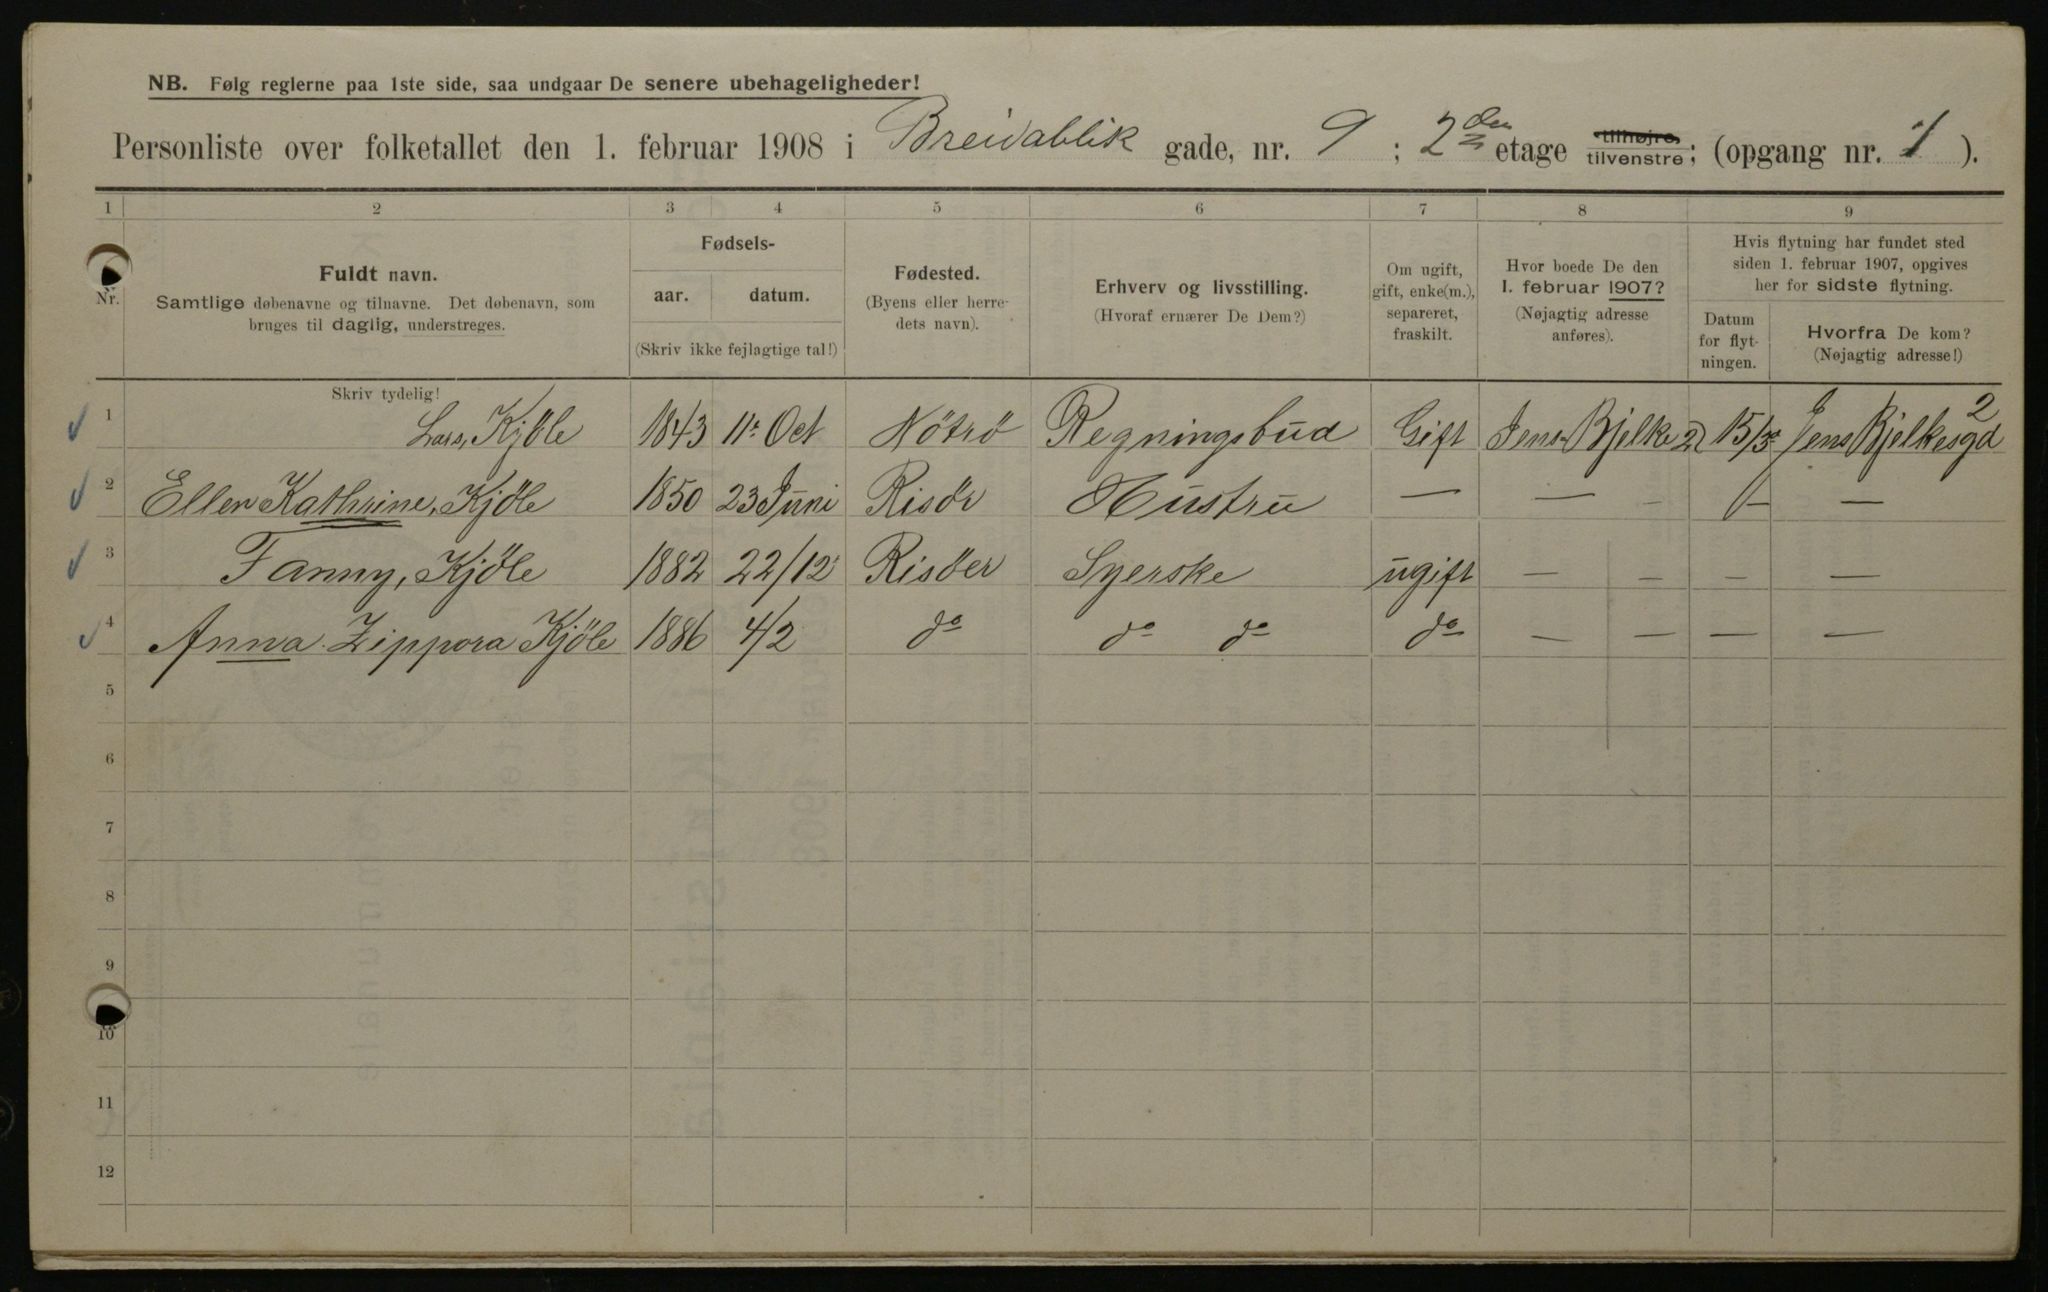 NB. Følg reglerne paa 1ste side, saa undgaar De senere ubehageligheder!
Personliste over folketallet den 1. februar 1908 i Breidablik gade, nr. 9 ; 2den etage tilhøjre, tilvenstre; (opgang nr. 1 ).
1 2 3 4 5 6 7 8 9
Nr.
Fuldt navn.
Samtlige døbenavne og tilnavne. Det døbenavn, som
bruges til daglig, understreges.
Fødsels-
aar. datum.
(Skriv ikke fejlagtige tal!)
Fødested.
(Byens eller herre-
dets navn).
Erhverv og livsstilling.
(Hvoraf ernærer De Dem?)
Om ugift,
gift, enke(m.),
separeret,
fraskilt.
Hvor boede De den
1. februar 1907?
(Nøjagtig adresse
anføres).
Hvis flytning har fundet sted
siden 1. februar 1907, opgives
her for sidste flytning.
Datum
for flyt-
ningen.
Hvorfra De kom?
(Nøjagtig adresse!)
Skriv tydelig!
1 Lars, Kjöle 1843 11te Oct Nötrö Regningsbud Gift Jens Bjelke 2 15/3 Jens Bjelkesgd 2
2 Ellen Kathrine, Kjöle 1850 23 Juni Risör Hustru — — - — —
3 Fanny, Kjöle 1882 22/12 Risöer Syerske ugift — — — —
4 Anna Zippora Kjöle 1886 4/2 do do do do — — — —
5
6
7
8
9
10
11
12